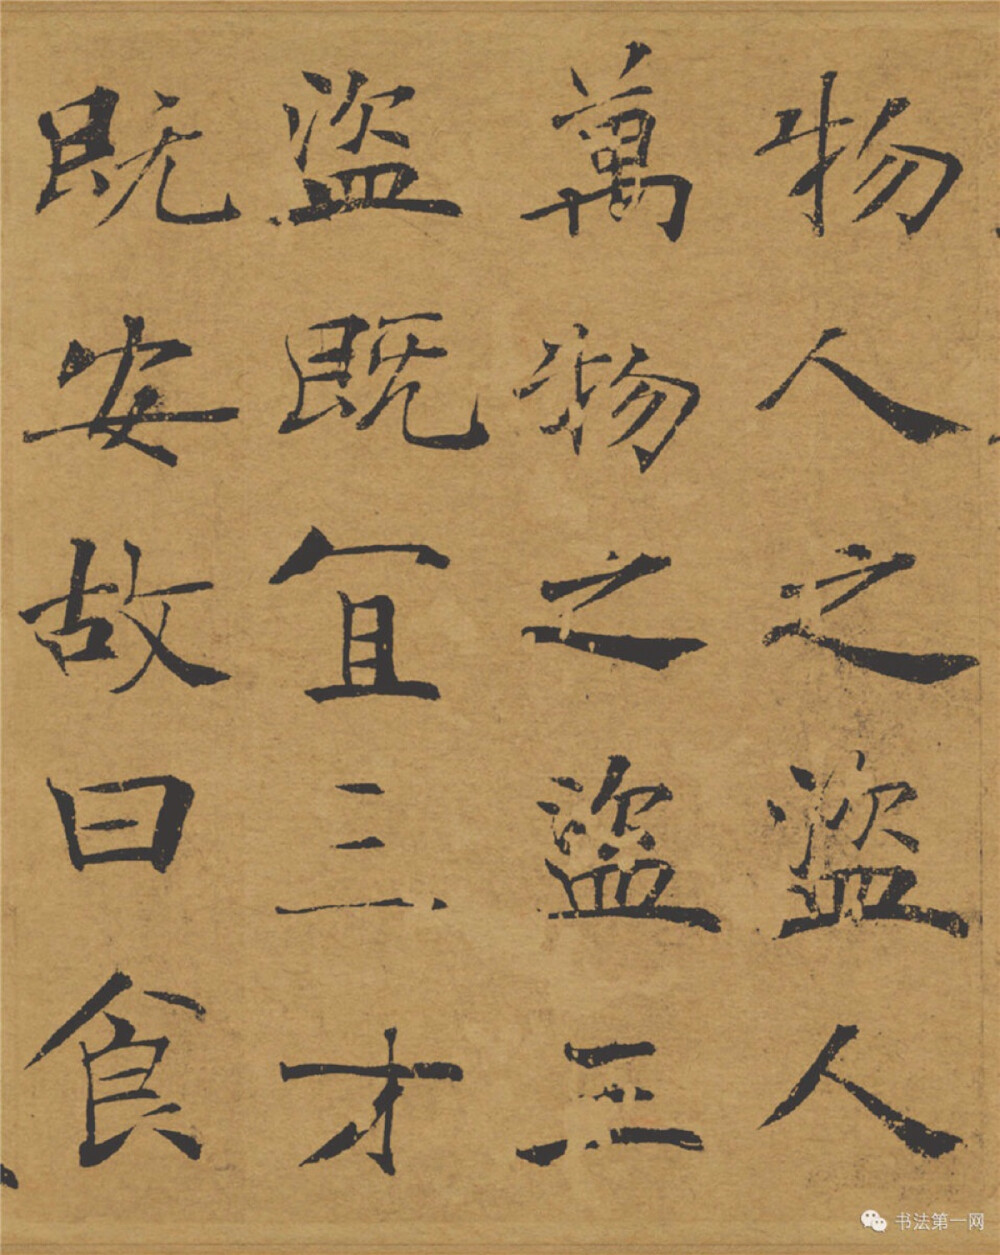 物人之盜人
萬物之盜三
盜既宜三才
既安故曰食
书法第一网